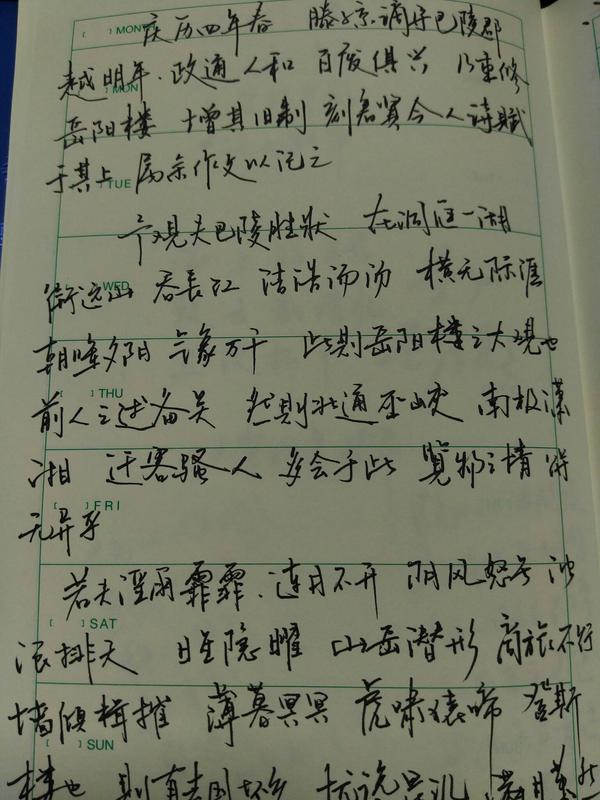 [ ] MON 庆历四年春 滕子京谪守巴陵郡
越明年.政通人和 百废俱兴 乃重修
MON
岳阳楼 增其旧制 刻名贤今人诗赋
于其上 属余作文以记之
TUE
予观夫巴陵胜状 在洞庭一湖
WED
衔远山 吞长江 浩浩汤汤 横无际涯
朝晖夕阴 气象万千 此则岳阳楼之大观也
[ ] THU
前人之述备矣 然则北通巫峡 南极潇
湘 迁客骚人 多会于此 览物之情 得
[ ] FRI
无异乎
若夫淫雨霏霏.连月不开 阴风怒号 浊
[ ] SAT
浪排天 日星隐曜 山岳潜形 商旅不行
墙倾楫摧 薄暮冥冥 虎啸猿啼 登斯
[ ] SUN
楼也 则有去国怀乡 忧谗畏讥 满目萧然